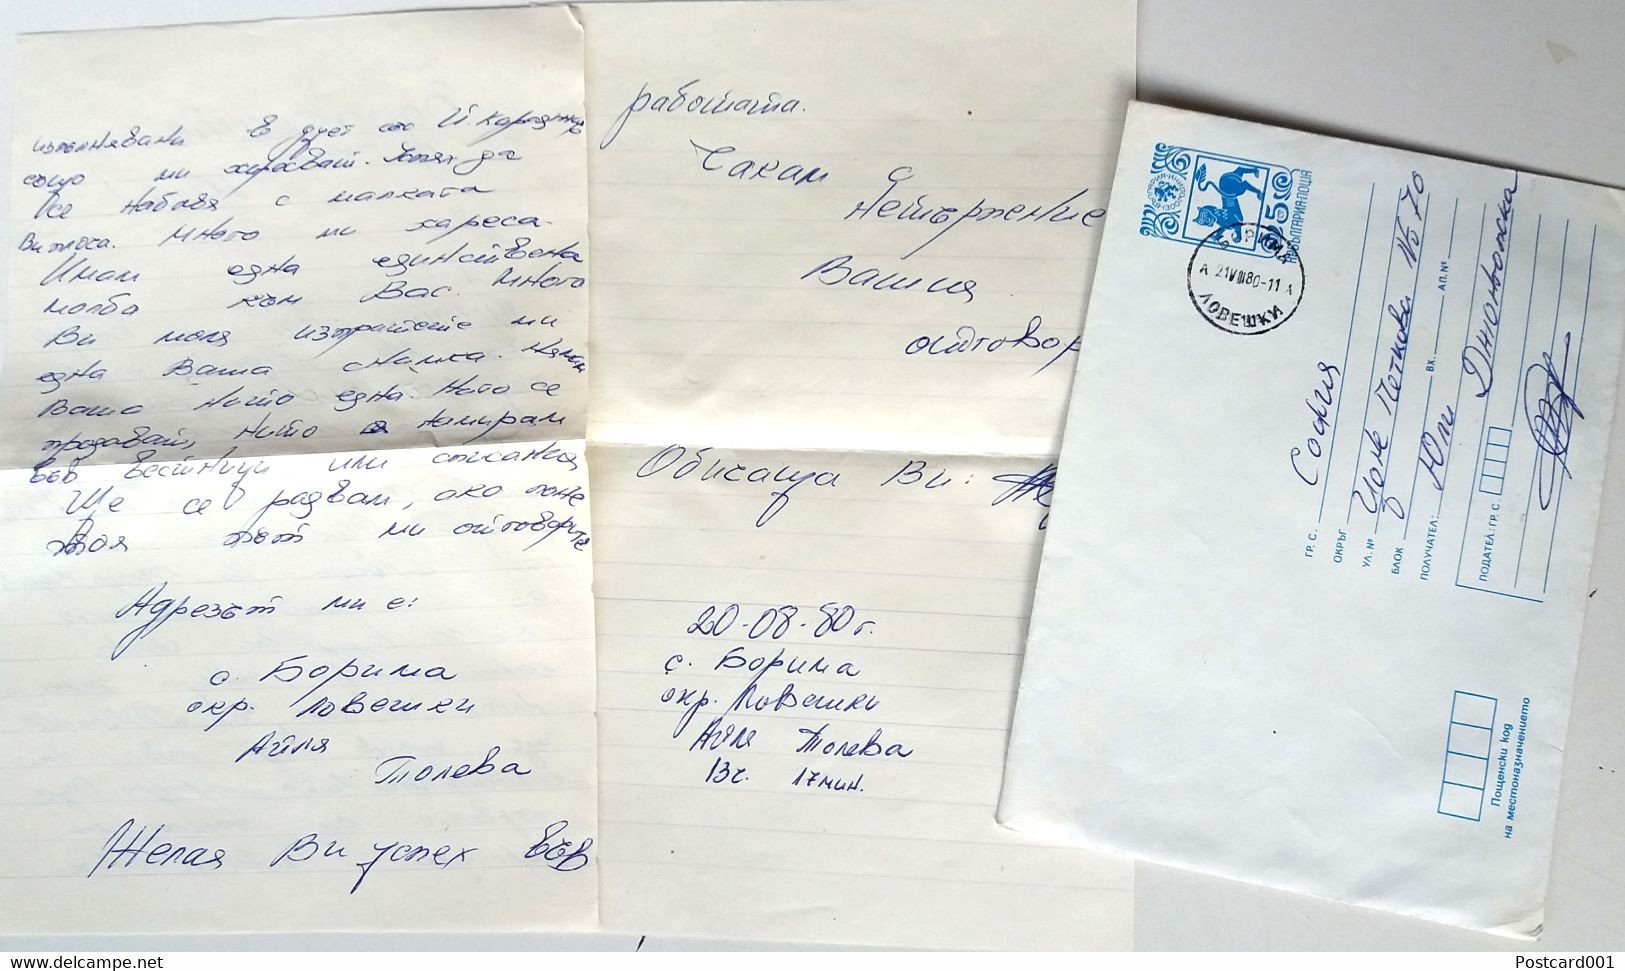 изпълнявани в дует със Й. Караджова
също ми харесват. Успях да
се набавя с малката
Ви плоча. Много ми хареса.
Имам една единствена
молба към Вас. Много
Ви моля изпратете ми
една Ваша снимка. Нямам
Ваша нито една. Нито се
продават, нито намирам
във вестници или списания
Ще се радвам, ако поне
този път ми отговорите
Адресът ми е:
с. Борима
окр. Ловешки
Айля
Толева
Желая Ви успех във
работата.
Чакам с
нетърпение
Вашия
отговор
Обичаща Ви:
20-08-80 г.
с. Борима
окр. Ловешки
Айля Толева
13 ч. 17 мин.
5
НР БЪЛГАРИЯ · ПОЩА
А 21 VIII 80-11 А
ЛОВЕШКИ
ГР. С. София
ОКРЪГ
УЛ. № Цонк Петкова № 70
БЛОК ВХ. АП. №
ПОЛУЧАТЕЛ:
ПОДАТЕЛ: ГР. С.
Пощенски код
на местоназначението
www.delcampe.net
Postcard001